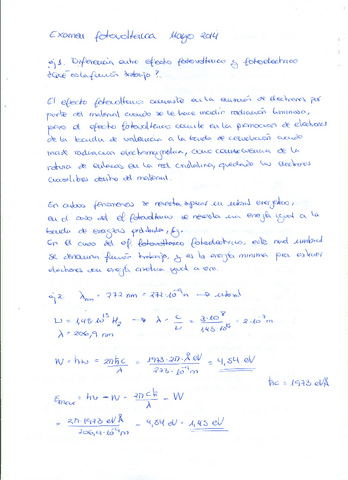 Examen fotovoltaica Mayo 2014
ej 1. Diferencia entre efecto fotovoltaico y fotoeléctrico
¿Qué es la función trabajo?
El efecto fotovoltaico consiste en la emisión de electrones por
parte del material cuando se le hace incidir radiación luminosa,
pero el efecto fotovoltaico consiste en la promoción de electrones
de la banda de valencia a la banda de conducción cuando
incide radiación electromagnética, como consecuencia de la
rotura de enlaces en la red cristalina, quedando los electrones
cuasilibres dentro del material.
En ambos fenómenos se necesita superar un umbral energético,
en el caso del ef fotovoltaico se necesita una energía igual a la
banda de energías prohibida, Eg.
En el caso del ef. fotovoltaico fotoeléctrico, este nivel umbral
se denomina función trabajo, y es la energía mínima para extraer
electrones con energía cinética igual a cero.
ej 2. λ = 272 nm = 272·10⁻⁹ m → umbral
ν = 1,45·10¹⁵ Hz → λ = c/ν = 3·10⁸/1,45·10¹⁵ = 2·10⁻⁷ m
λ = 206,9 nm
W = hν = 2πħc/λ = 1973·2π·Å eV/273·10⁻⁹ m = 4,54 eV
ħc = 1973 eVÅ
Emax = hν - W = 2πcħ/λ - W
= 2π·1973 eVÅ/206,9·10⁻⁹ m - 4,54 eV = 1,45 eV